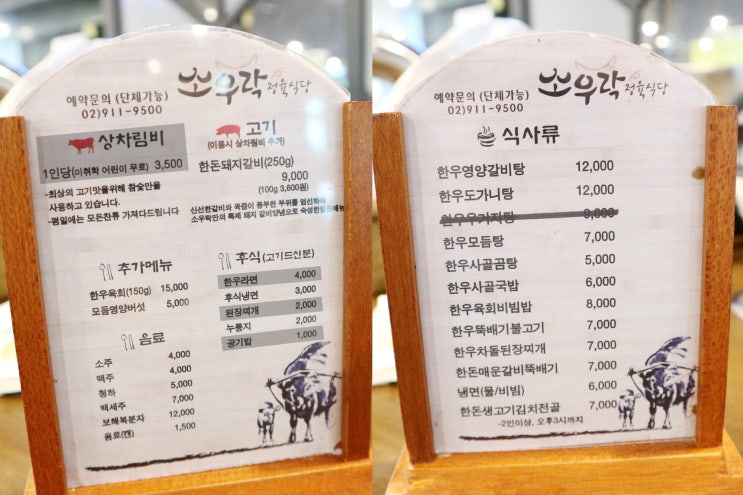 뽀우락 정육식당
예약문의 (단체가능)
02)911-9500
상차림비
1인당(미취학 어린이 무료) 3,500
-최상의 고기맛을위해 참숯만을
사용하고 있습니다.
-평일에는 모든찬류 가져다드립니다
고기
(이용시 상차림비 추가)
한돈돼지갈비(250g)
9,000
(100g 3,600원)
신선한갈비와 육즙이 풍부한 부위를 엄선하여
소우락만의 특제 돼지 갈비양념으로 숙성한
추가메뉴
한우육회(150g) 15,000
모듬영양버섯 5,000
음료
소주 4,000
맥주 4,000
청하 5,000
백세주 7,000
보해복분자 12,000
음료(캔) 1,500
후식(고기드신분)
한우라면 4,000
후식냉면 3,000
된장찌개 2,000
누룽지 2,000
공기밥 1,000
뽀우락 정육식당
예약문의 (단체가능)
02)911-9500
식사류
한우영양갈비탕 12,000
한우도가니탕 12,000
한우우거지탕 9,000
한우모듬탕 7,000
한우사골곰탕 5,000
한우사골국밥 6,000
한우육회비빔밥 8,000
한우뚝배기불고기 7,000
한우차돌된장찌개 7,000
한돈매운갈비뚝배기 7,000
냉면(물/비빔) 6,000
한돈생고기김치전골 7,000
-2인이상, 오후3시까지